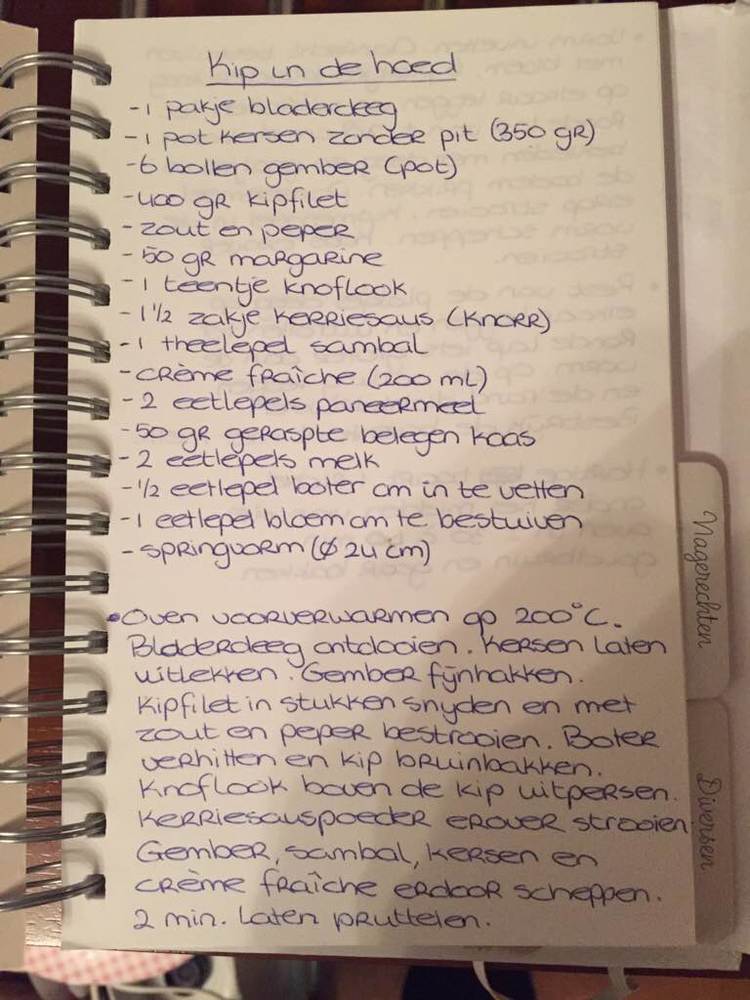 Kip in de hoed
- 1 pakje bladerdeeg
- 1 pot kersen zonder pit (350 gr)
- 6 bollen gember (pot)
- 400 gr kipfilet
- zout en peper
- 50 gr margarine
- 1 teentje knoflook
- 1 1/2 zakje kerriesaus (Knorr)
- 1 theelepel sambal
- crème fraîche (200 ml)
- 2 eetlepels paneermeel
- 50 gr geraspte belegen kaas
- 2 eetlepels melk
- 1/2 eetlepel boter om in te vetten
- 1 eetlepel bloem om te bestuiven
- springvorm (ø 24 cm)
• Oven voorverwarmen op 200°C.
Bladerdeeg ontdooien. Kersen laten
uitlekken. Gember fijnhakken.
Kipfilet in stukken snijden en met
zout en peper bestrooien. Boter
verhitten en kip bruinbakken.
Knoflook boven de kip uitpersen.
Kerriesauspoeder erover strooien
Gember, sambal, kersen en
crème fraîche erdoor scheppen.
2 min. laten pruttelen.
Nagerechten
Diversen